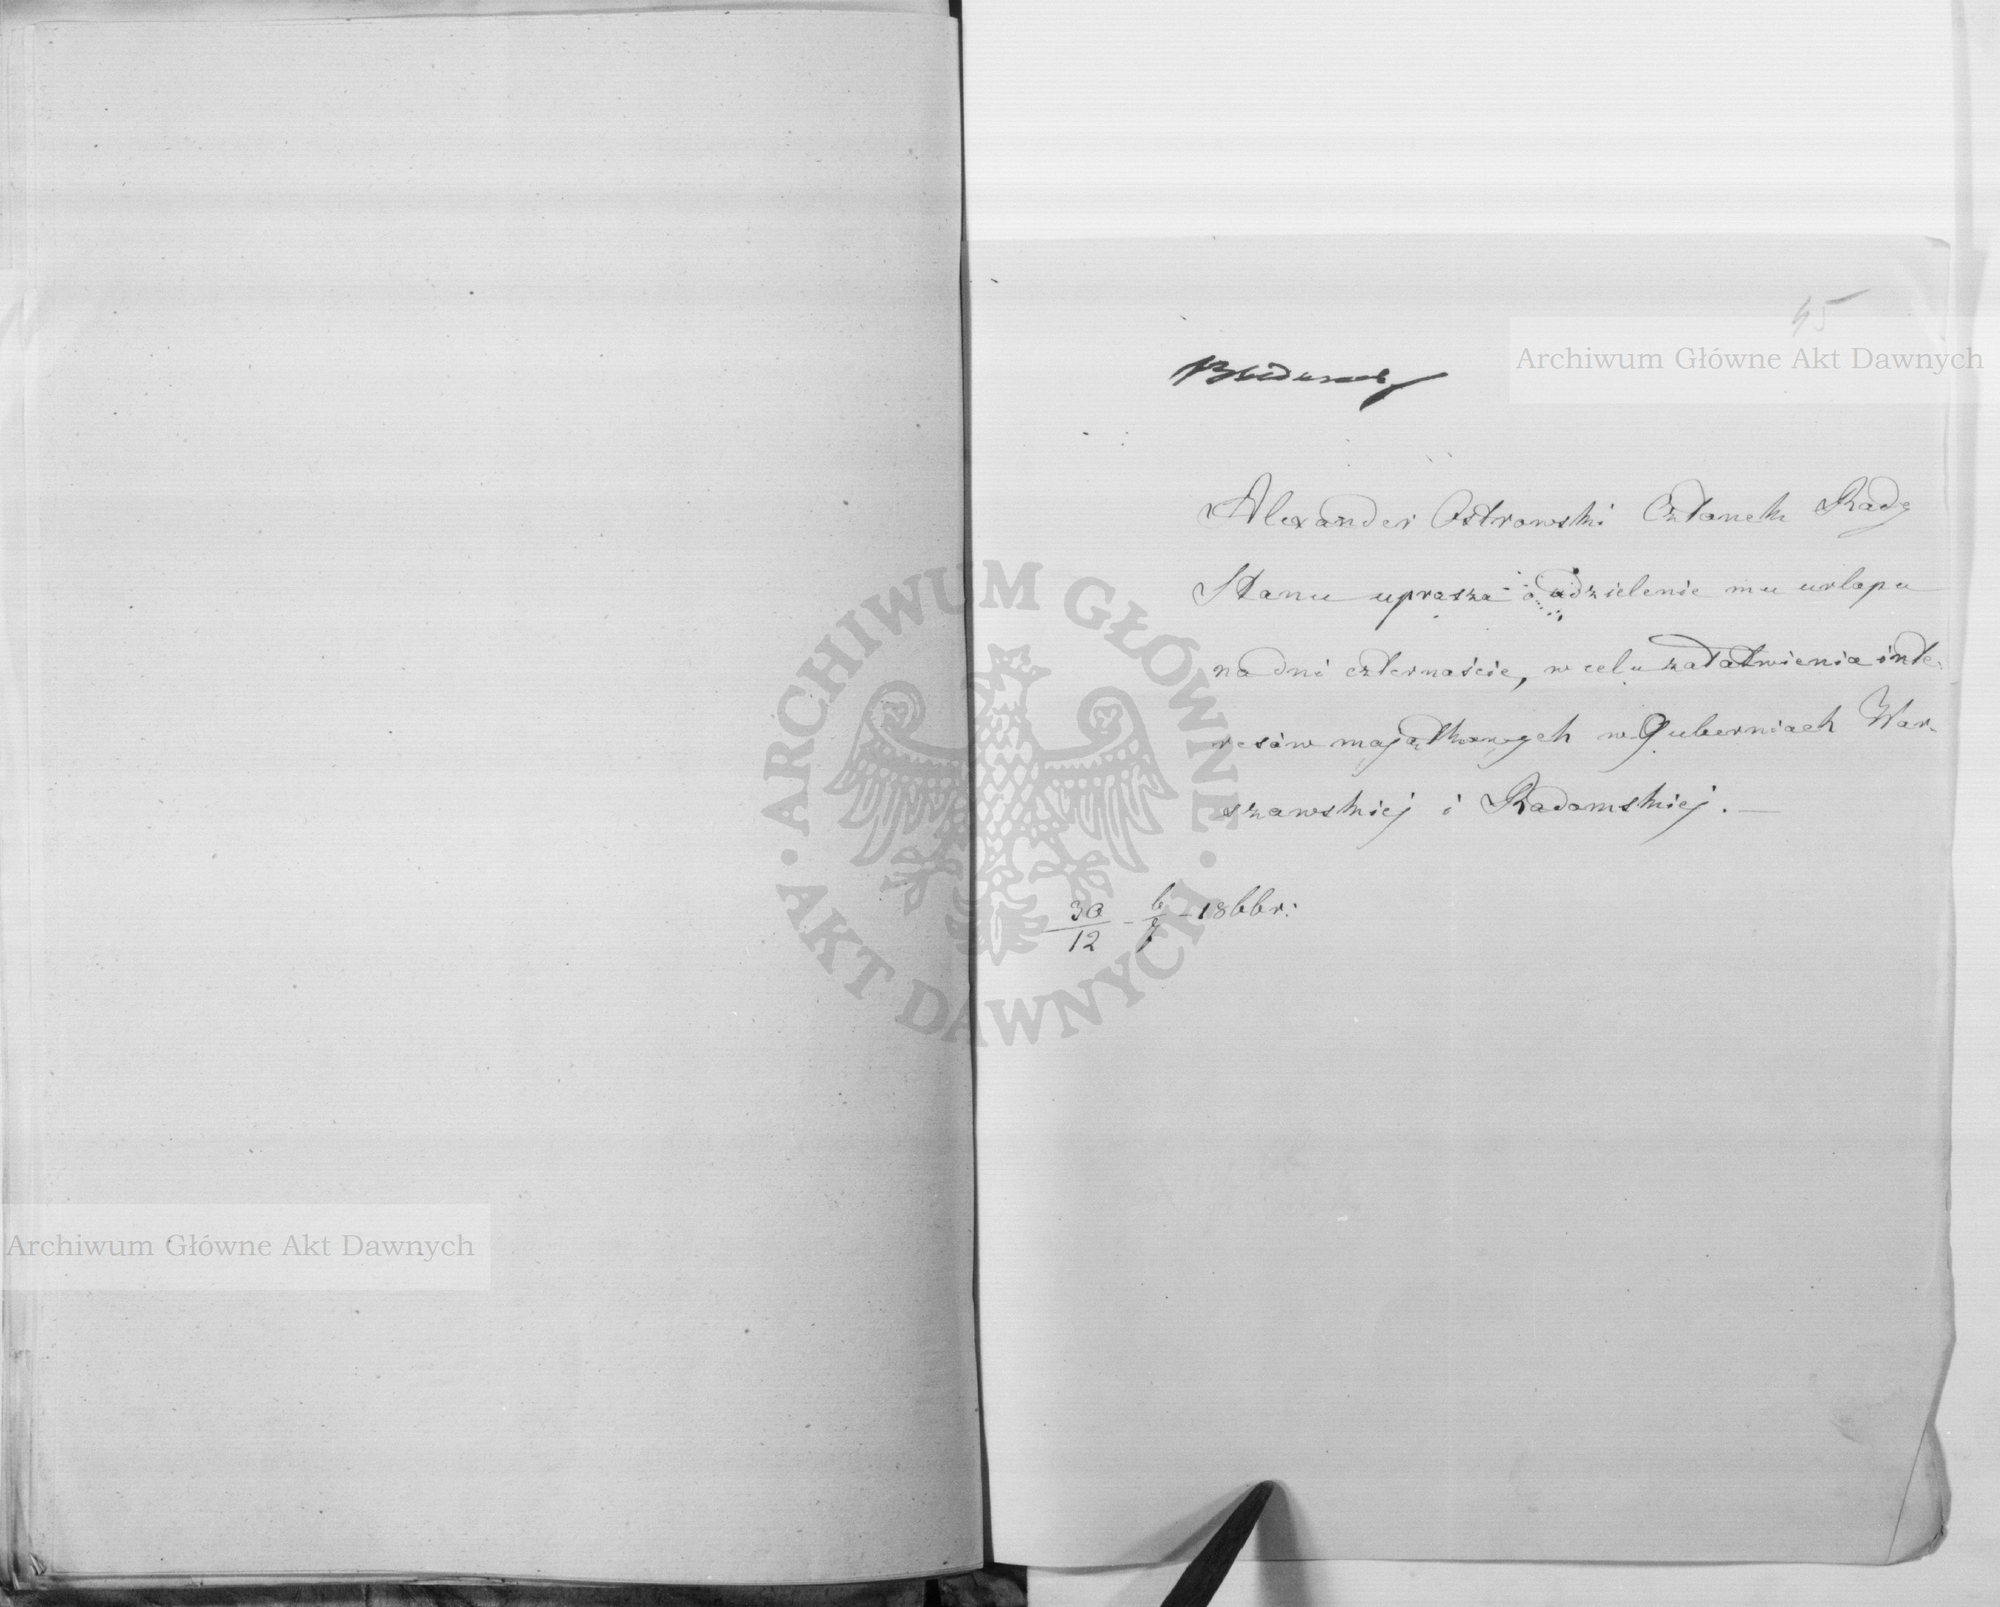 45
Archiwum Główne Akt Dawnych
Alexander Ostrowski Członek Rady
Stanu uprasza o udzielenie mu urlopu
na dni czternaście, w celu załatwienia inte-
resów majątkowych w Guberniach War-
szawskiej i Radomskiej. —
30/12 - 6/7 - 1866 r:
ARCHIWUM GŁÓWNE
AKT DAWNYCH
Archiwum Główne Akt Dawnych